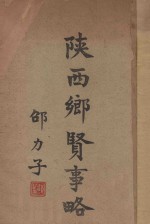 陝西鄉賢事略
邵力子